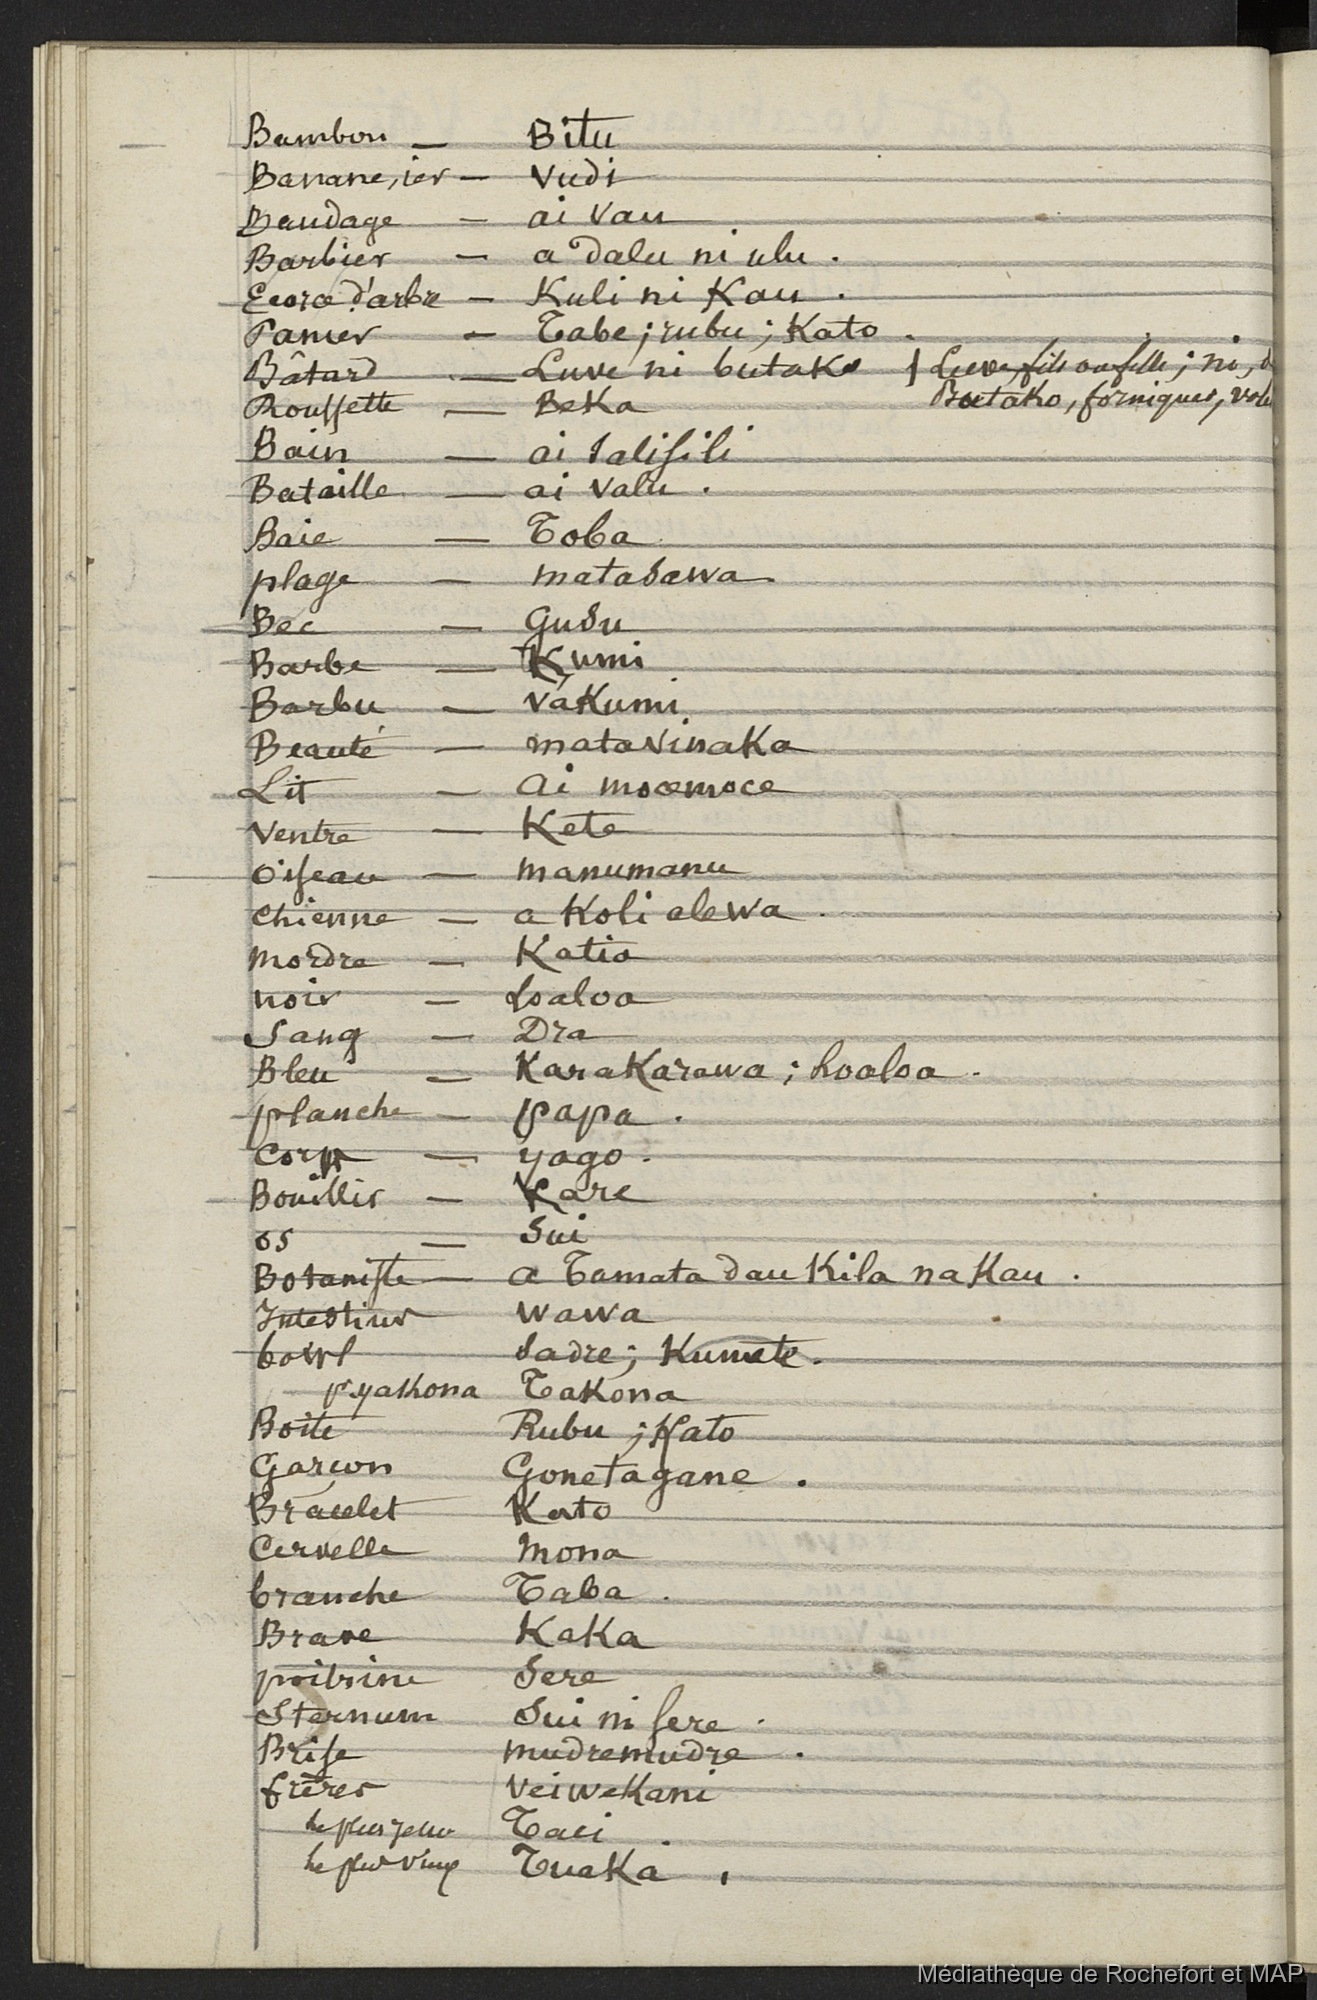 Bambou — Bitu
Banane, ier — Vudi
Bandage — ai vau
Barbier — a dalu ni ulu.
Ecorce d'arbre — Kuli ni Kau.
Panier — Tabe; rubu; Kato.
Bâtard — Luve ni butako | Luve, fils ou fille; ni, d
Roussette — Beka Butako, forniquer, vole
Bain — ai salisili
Bataille — ai valu.
Baie — Toba
plage — matasawa.
Bec — Gusu
Barbe — Kumi
Barbu — vakumi
Beauté — matavinaka
Lit — ai mocemoce
Ventre — Kete
Oiseau — manumanu
chienne — a Koli alewa.
mordre — Katia
noir — loaloa
Sang — Dra
Bleu — Karakarawa; loaloa.
planche — papa.
Corps — yago.
Bouillir — Kare
os — Sui
Botaniste — a Tamata dau Kila na Kau.
Intestins wawa
bowl Sadre; Kumete.
pr yakona Takona
Boite Rubu; Kato
Garçon Gonetagane.
Bracelet Kato
Cervelle mona
branche Taba.
Brave Kaka
poitrine Sere
Sternum Sui ni sere.
Brise mudremudre.
frères Veiwekani
le plus jeune Taci.
le plus vieux Tuaka.
Médiathèque de Rochefort et MAP